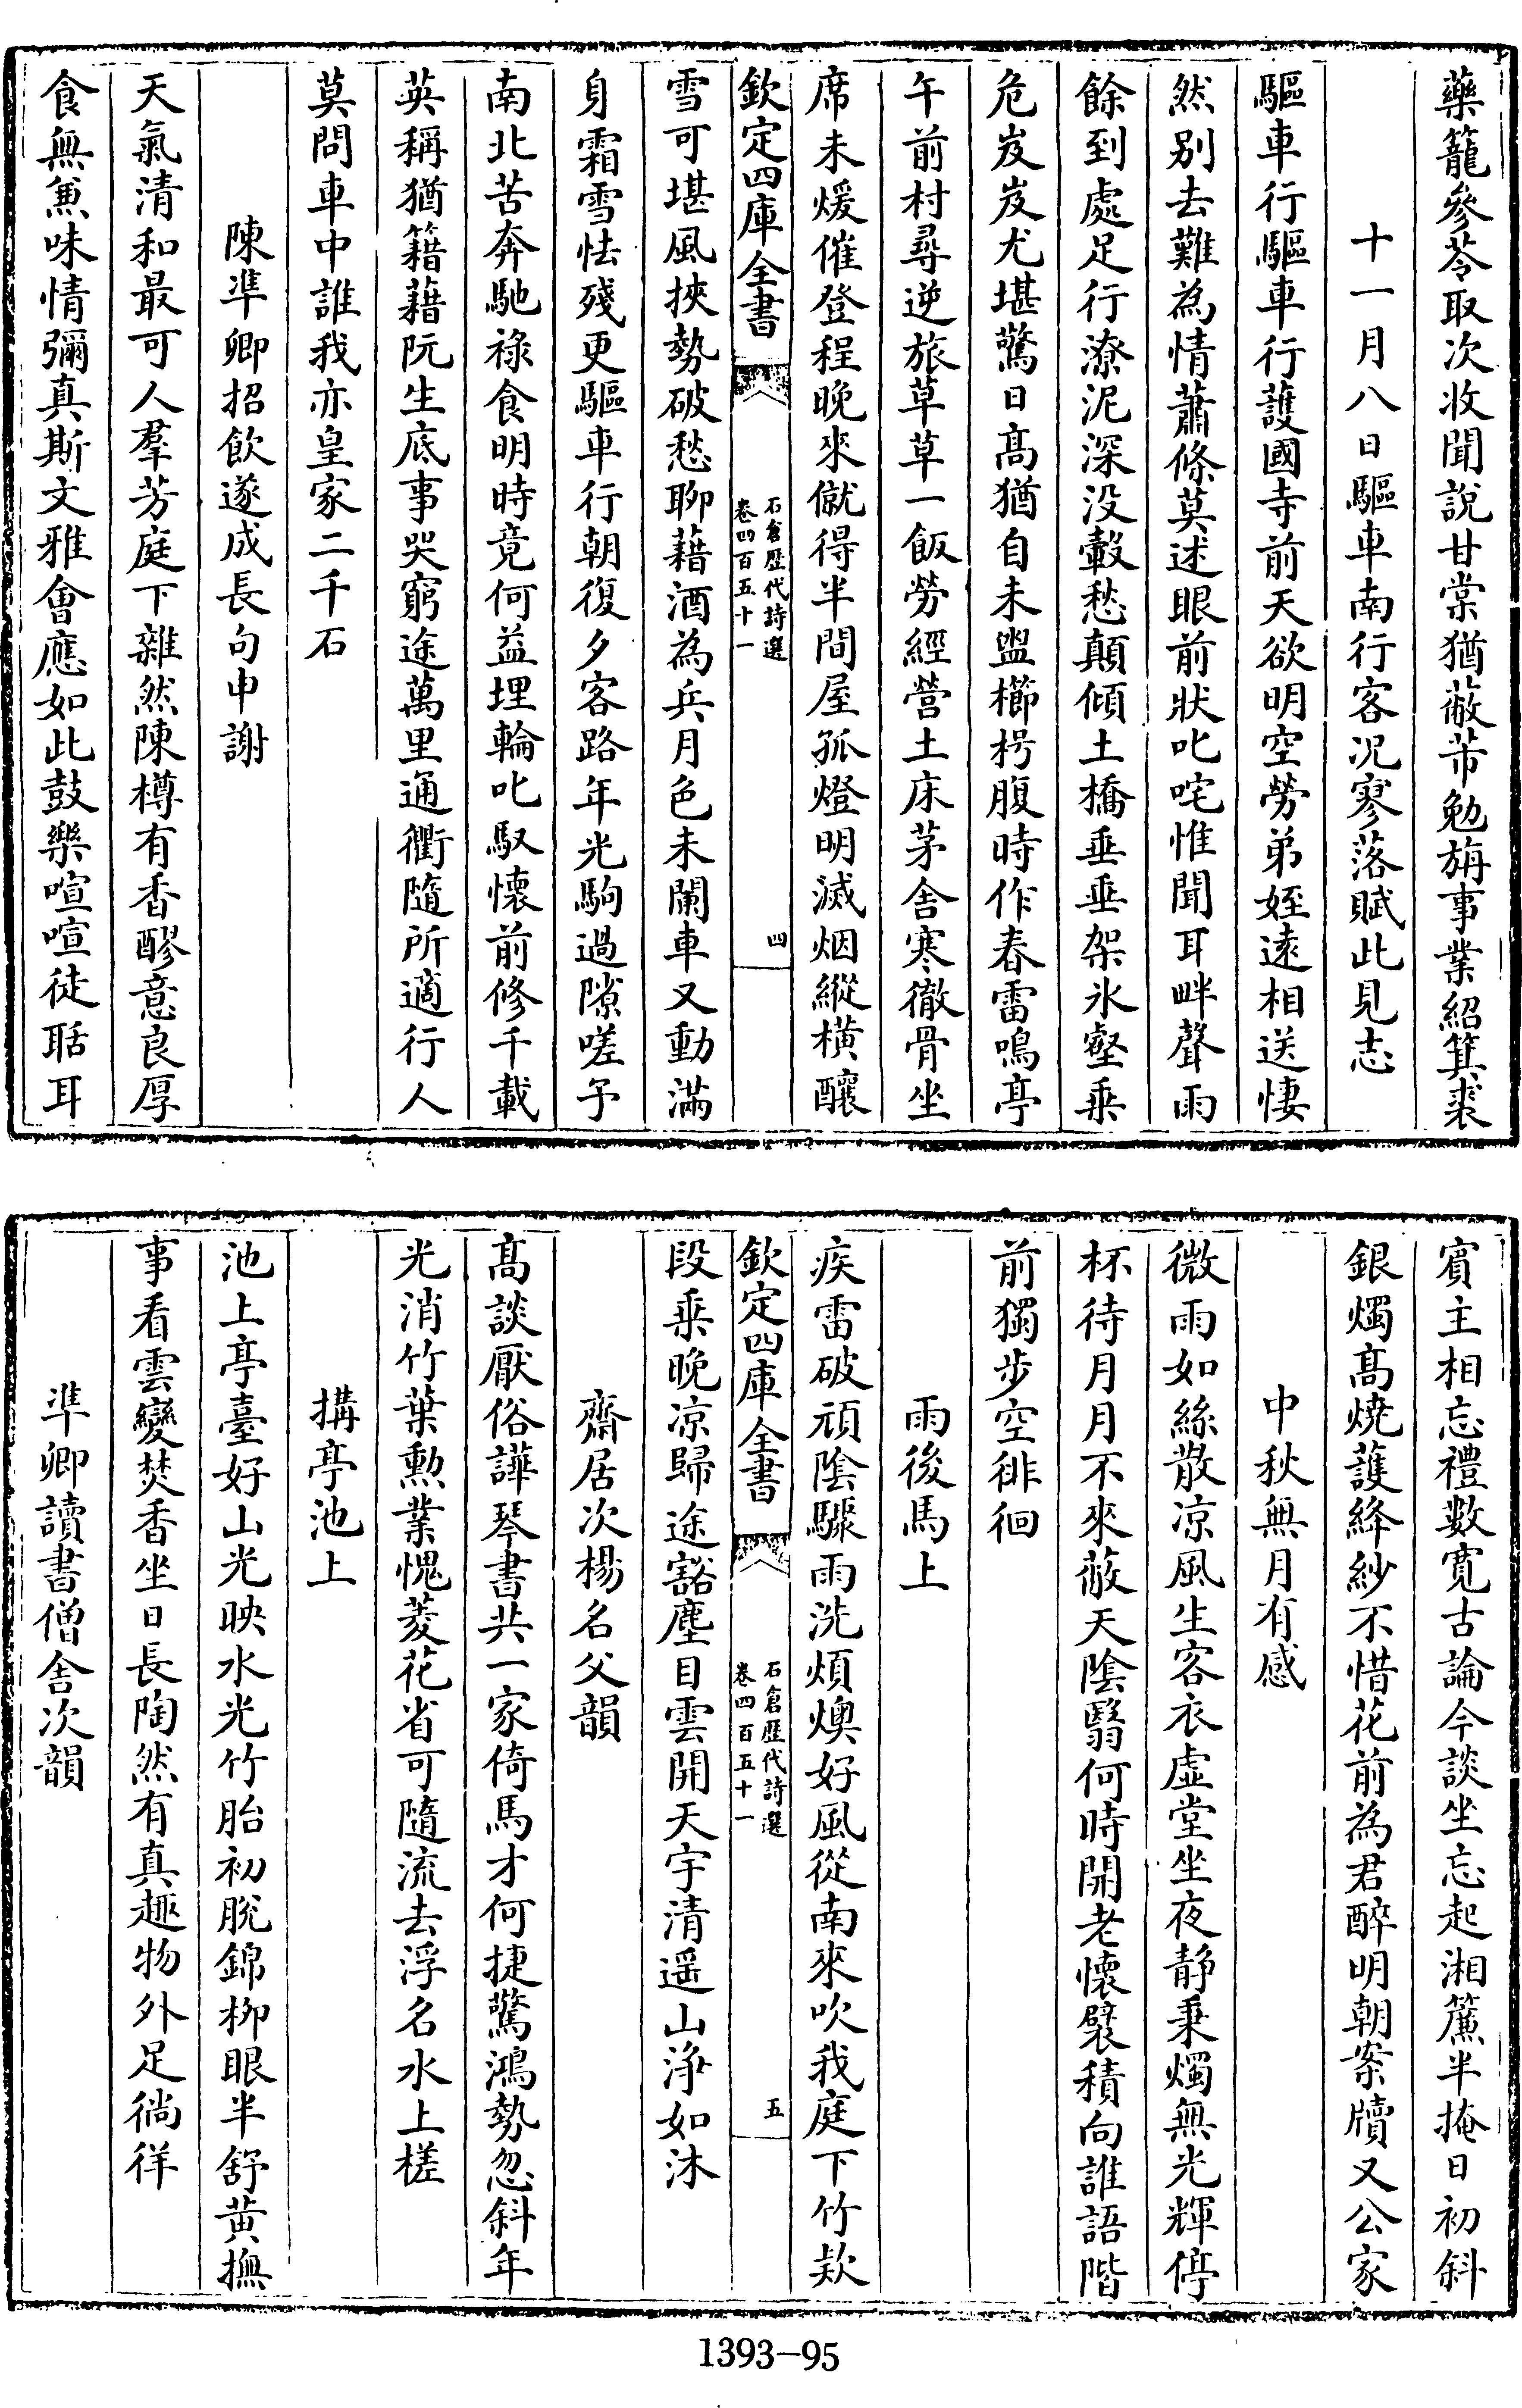 藥籠參苓取次收聞說甘棠猶蔽芾勉旃事業紹箕裘
十一月八日驅車南行客况寥落賦此見志
驅車行驅車行䕶國寺前天欲明空勞弟姪遠相送悽
然别去難為情蕭條莫述眼前狀叱咤惟聞耳畔聲雨
餘到處足行潦泥深没轂愁顛傾土橋垂垂架氷壑乗
危岌岌尤堪驚日髙猶自未盥櫛枵腹時作春雷鳴亭
午前村尋逆旅草草一飯勞經營土床茅舍寒徹骨坐
席未煖催登程晚來僦得半間屋孤燈明滅烟縱横釀
欽定四庫全書
石倉歷代詩選
卷四百五十一
四
雪可堪風挾勢破愁聊藉酒為兵月色未闌車又動滿
身霜雪怯殘更驅車行朝復夕客路年光駒過隙嗟予
南北苦奔馳祿食明時竟何益埋輪叱馭懷前修千載
英稱猶籍藉阮生底事哭窮途萬里通衢隨所適行人
莫問車中誰我亦皇家二千石
陳凖卿招飲遂成長句申謝
天氣清和最可人羣芳庭下雜然陳樽有香醪意良厚
食無兼味情彌真斯文雅會應如此鼓樂喧喧徒聒耳
賓主相忘禮數寛古論今談坐忘起湘簾半掩日初斜
銀燭髙燒䕶絳紗不惜花前為君醉明朝案牘又公家
中秋無月有感
微雨如絲散凉風生客衣虚堂坐夜静秉燭無光輝停
杯待月月不來蔽天陰翳何時開老懷襞積向誰語階
前獨步空徘徊
雨後馬上
疾雷破頑陰驟雨洗煩燠好風從南來吹我庭下竹欵
欽定四庫全書
石倉歷代詩選
卷四百五十一
五
段乗晚凉歸途豁塵目雲開天宇清遥山浄如沐
齋居次楊名父韻
髙談厭俗譁琴書共一家倚馬才何捷驚鴻勢忽斜年
光消竹葉勲業愧菱花省可隨流去浮名水上槎
搆亭池上
池上亭臺好山光映水光竹胎初脫錦栁眼半舒黄撫
事看雲變焚香坐日長陶然有真趣物外足徜徉
凖卿讀書僧舍次韻
1393-95